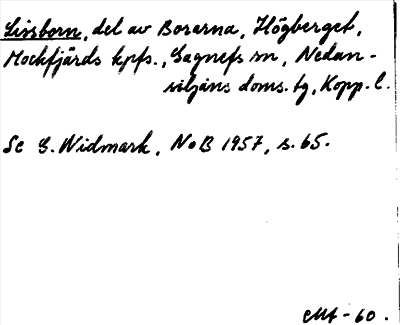 Linborn, del av Borarna, Högberget,
Mockfjärds kpfs., Gagnefs sn, Nedan-
siljans doms. tg, Kopp. l.
Se G. Widmark, NoB 1957, s. 65.
-60.